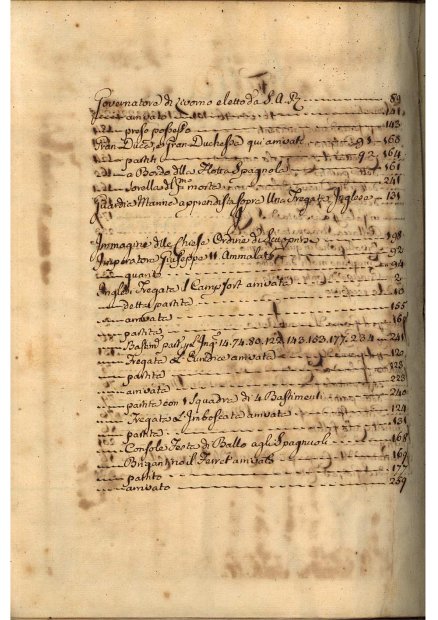 Governatore di Livorno eletto da S.A.R. 89
arrivato 141
preso possesso 143
Gran Duca, e Gran Duchessa qui arrivati 91 168
partiti 92 164
a Bordo della Flotta Spagnola 161
Sorella di morta 241
Guardia Marina apprendista sopra Una Fregata Inglese 131
Immagine delle Chiese Ordine di Scoprire 198
Imperatore Giuseppe II. Ammalato 92
guarito 94
Inglesi Fregata 1 Campfort arrivata 2
detta partita 10
arrivata 155
partita
Bastimenti 14. 74. 80. 123. 143. 153. 177. 234 241
Fregata l'Euridice arrivata 120
partita 123
arrivata 223
partita con 1 Squadra di 4 Bastimenti 240
Fregata l'Imboscata arrivata 124
partita 131
Console Festa di Ballo agli Spagnuoli 168
Brigantino il Ferret arrivato 169
partito 177
arrivato 259